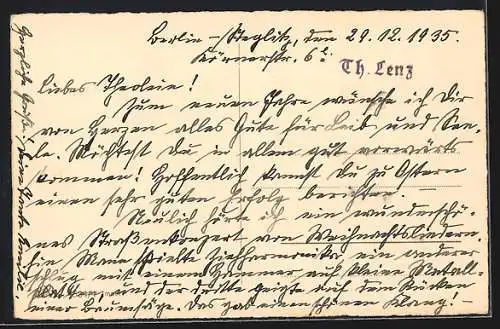 Berlin-Steglitz, den 29.12.1935.
Körnerstr. 6
Th. Lenz
Liebes Theolein!
Zum neuen Jahre wünsche ich Dir
von Herzen alles Gute für Leib und See-
le. Möchtest Du in allem gut vorwärts
kommen! Hoffentlich kannst Du zu Ostern
einen sehr guten Erfolg berichten. –
Neulich hörte ich ein wunderschö-
nes Straßenkonzert von Weihnachtsliedern.
Ein Mann spielte Ziehharmonika, ein anderer
schlug mit einem Hammer auf kleine Metall-
platten, und der dritte geigte auf dem Rücken
einer Baumsäge. Das gab einen schönen Klang! –
Herzliche Grüße!